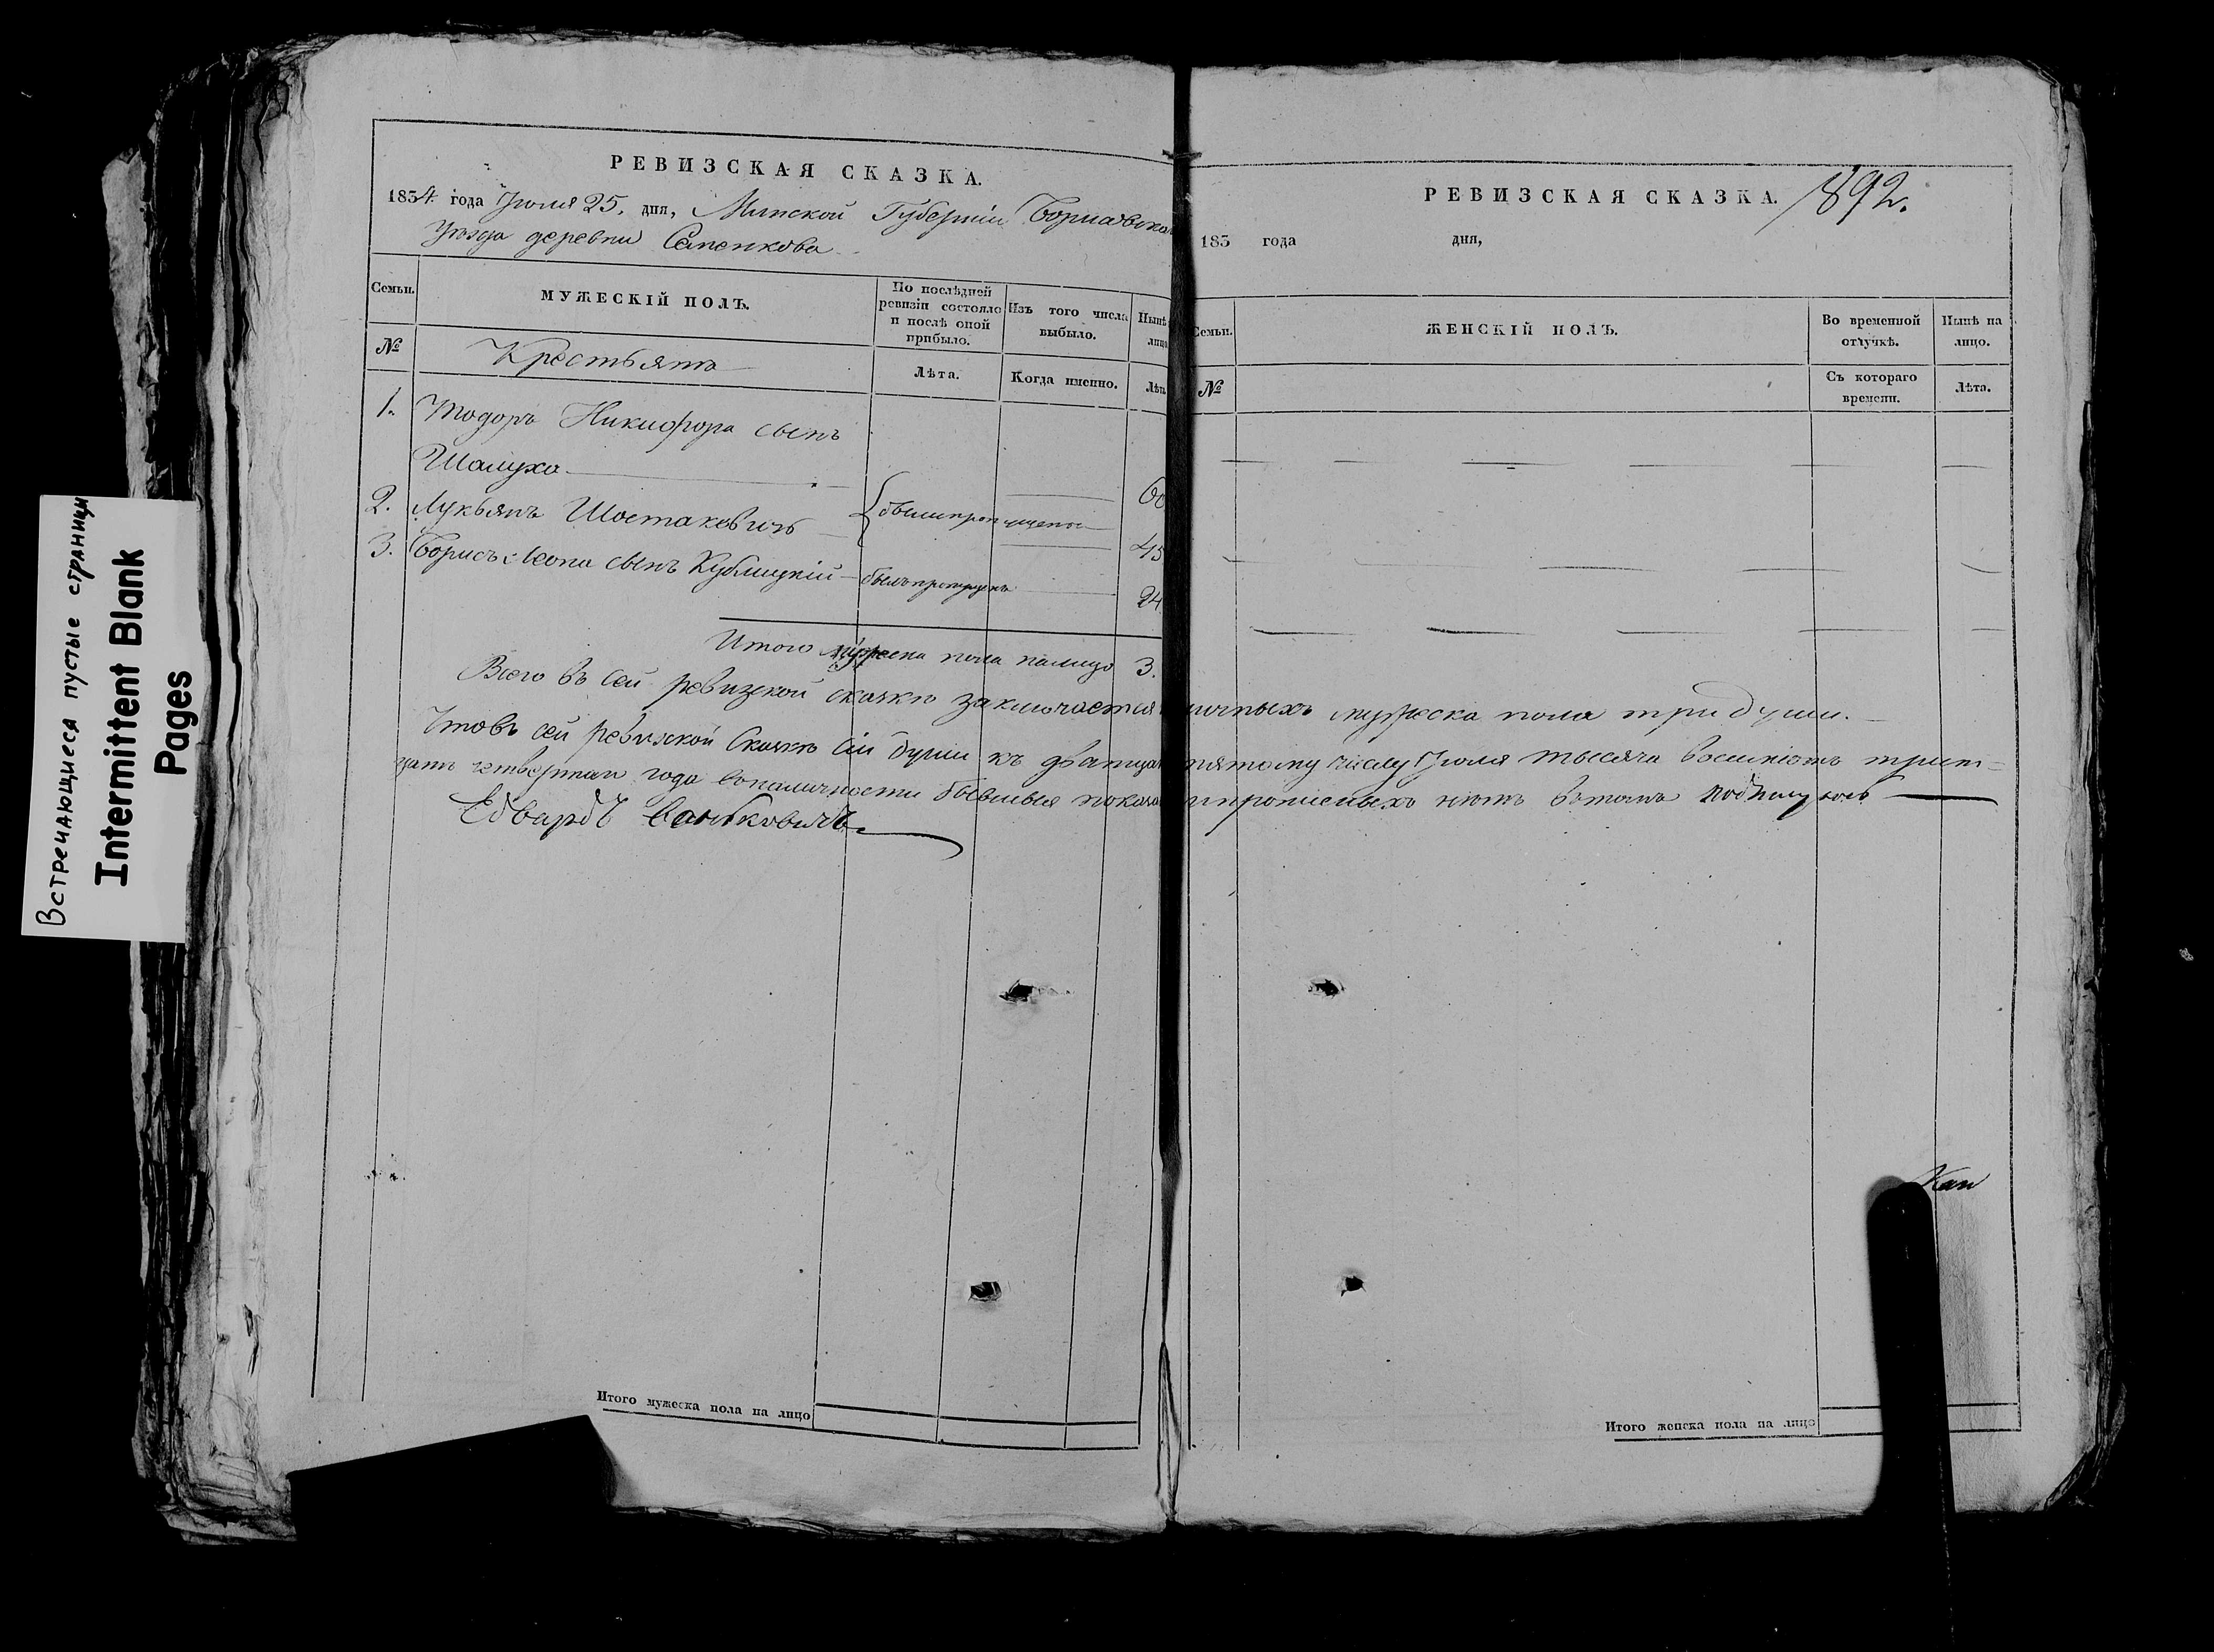 Встречающиеся пустые страницы
Intermittent Blank
Pages
РЕВИЗСКАЯ СКАЗКА.
1834 года Іюля 25, дня, Минской Губерніи Борисовска
Уѣзда деревни Семенкова
Семьи.
МУЖЕСКІЙ ПОЛЪ.
По послѣдней
ревизіи состояло
и послѣ оной
прибыло.
Изъ того числа
выбыло.
Нынѣ
лицо
№
Крестьянъ
Лѣта.
Когда именно.
Лѣт
1. Тодоръ Никифора сынъ
Шалуха 60
2. Лукьянъ Шостаковичь были пропущены 45
3. Борисъ Леона сынъ Кублицкій былъ пропущенъ 24
Итого мужеска пола налицо 3.
Всего въ сей ревизской сказкѣ заключается личныхъ мужеска пола три души.
Что въ сей ревизской Сказкѣ сіи души къ двадцать пятому числу Іюля тысяча восемсотъ трит=
цать четвертаго года вналичности бывшыя показа ипрописныхъ нѣтъ вътомъ подписуюсь
Едвардъ Ваньковичъ
Итого мужеска пола на лицо
РЕВИЗСКАЯ СКАЗКА. 892.
183 года дня,
Семьи.
ЖЕНСКІЙ ПОЛЪ.
Во временной
отлучкѣ.
Нынѣ на
лицо.
№
Съ котораго
времени.
Лѣта.
Итого женска пола на лицо